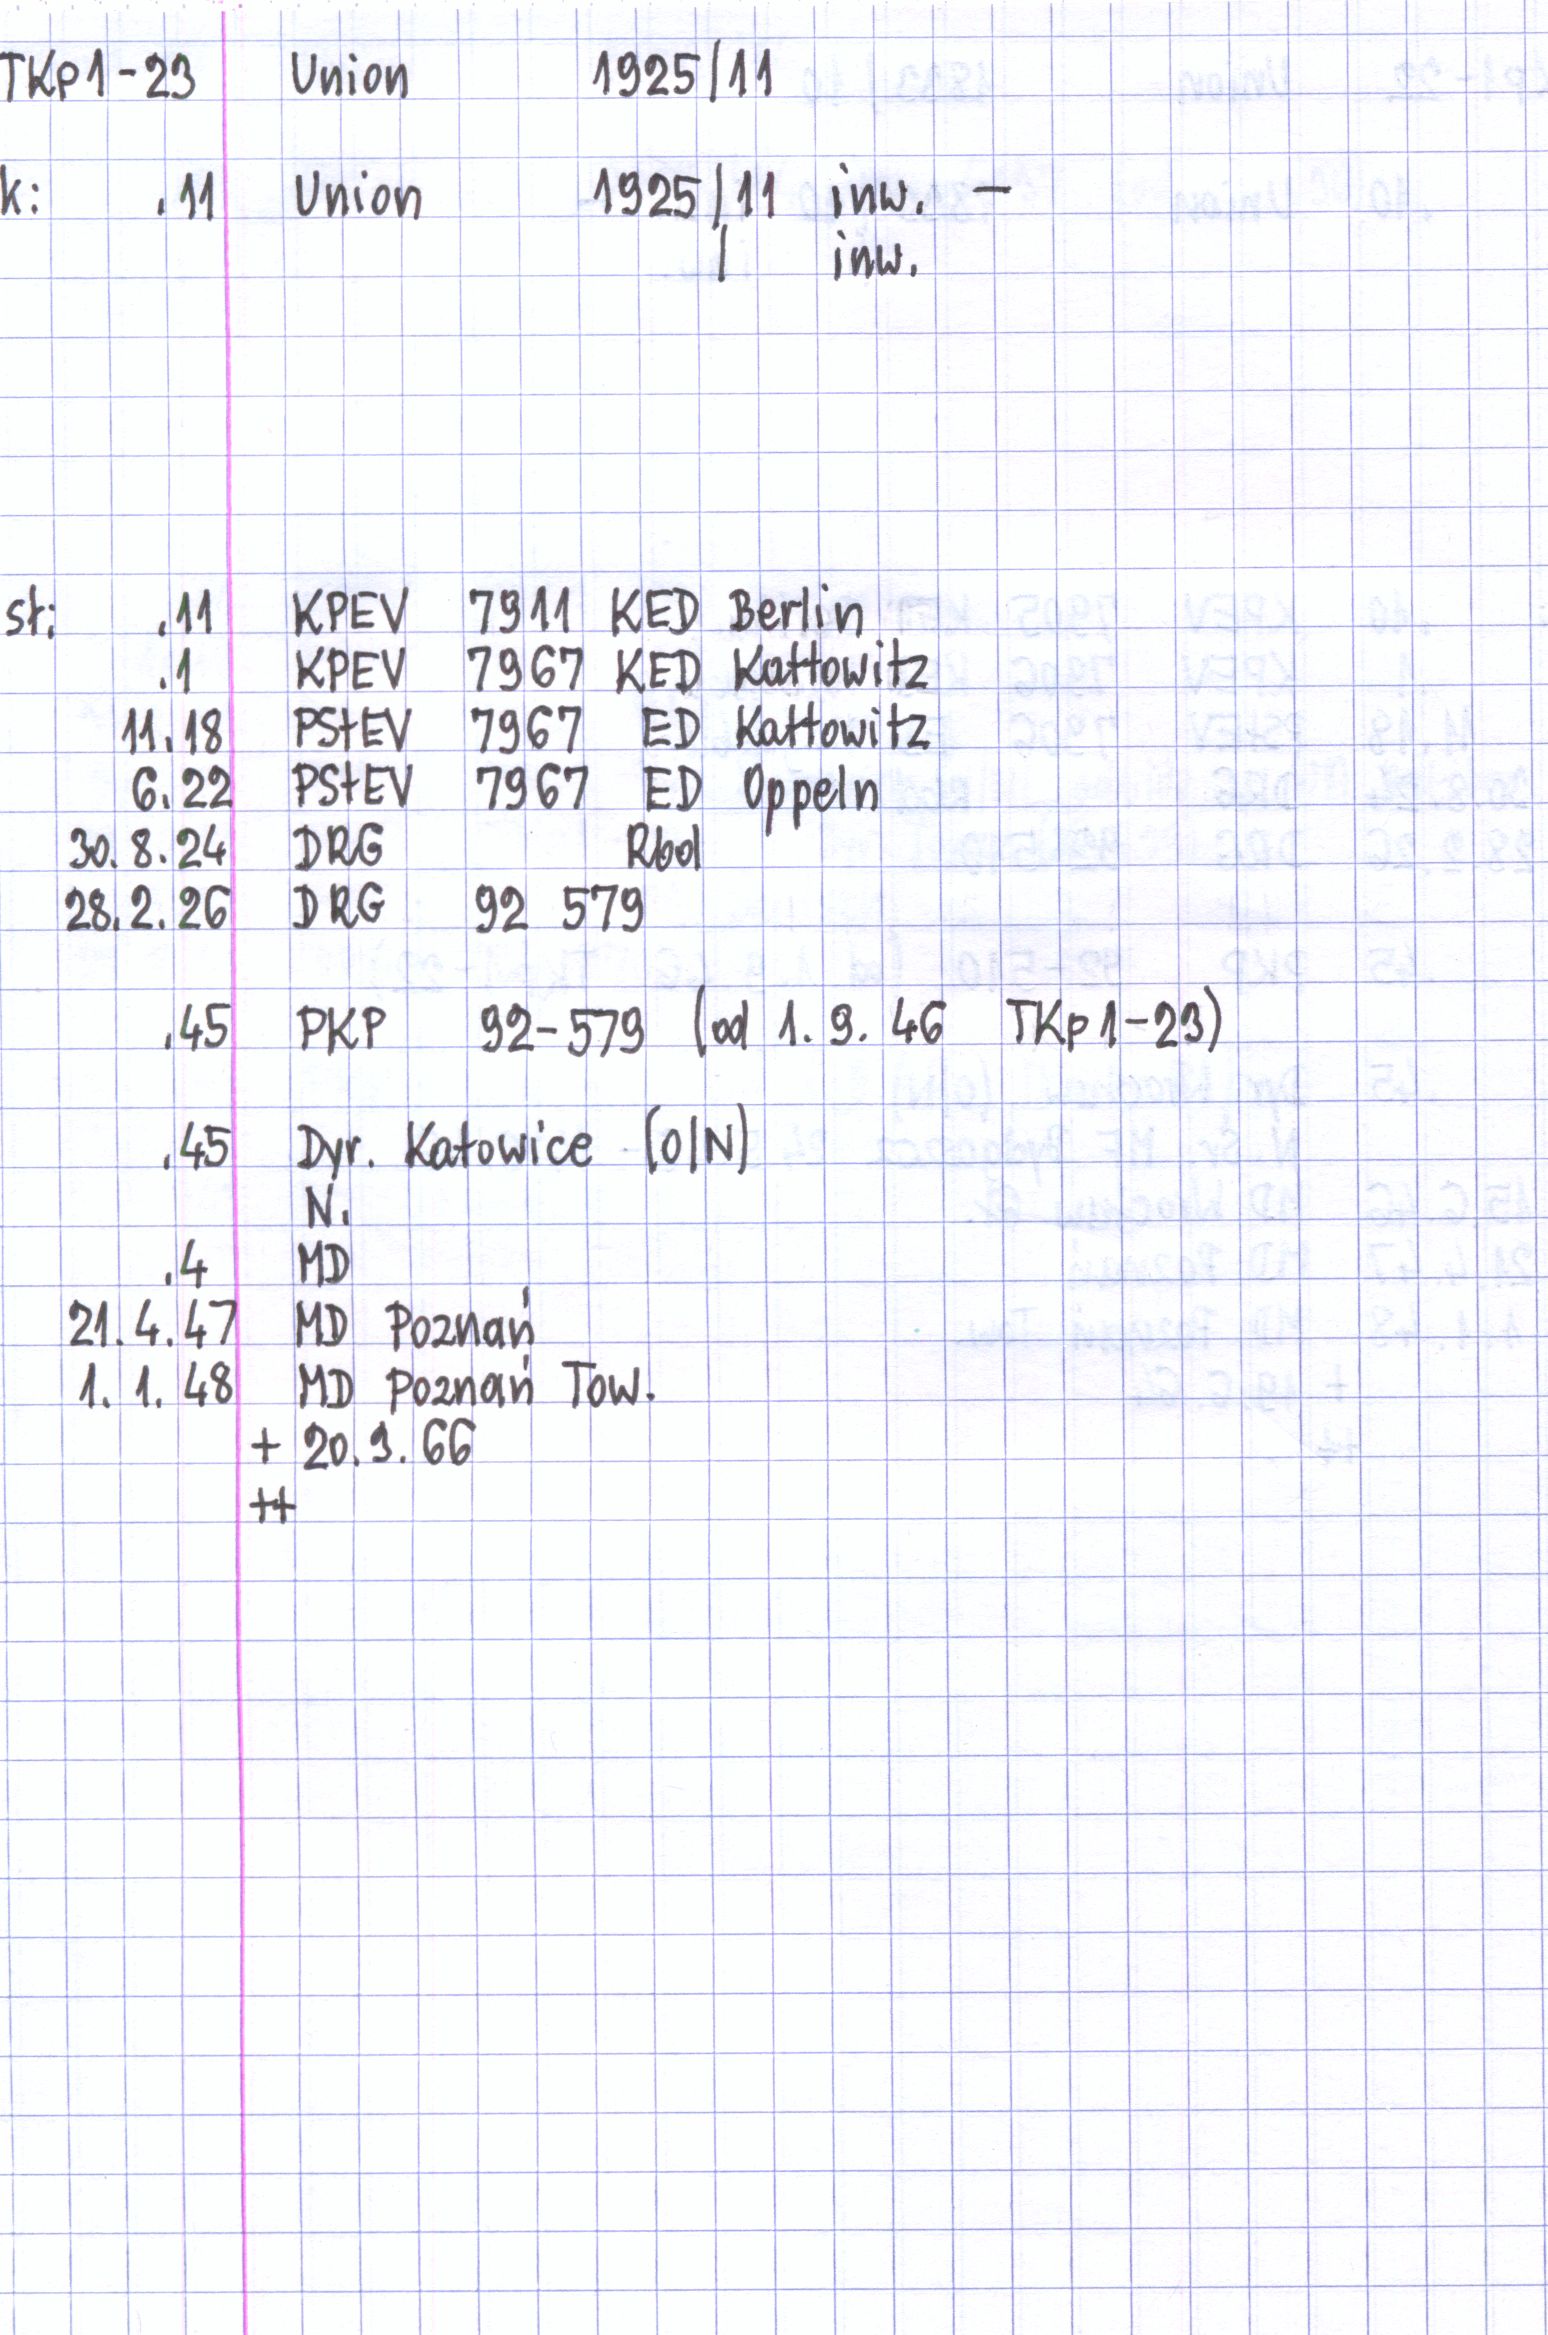 TKp1-23 Union 1925/11
k: .11 Union 1925/11 inw. —
/ inw.
st: .11 KPEV 7911 KED Berlin
.1 KPEV 7967 KED Kattowitz
11.18 PStEV 7967 ED Kattowitz
6.22 PStEV 7967 ED Oppeln
30.8.24 DRG Rbd
28.2.26 DRG 92 579
.45 PKP 92-579 (od 1.9.46 TKp1-23)
.45 Dyr. Katowice (O/N)
N.
.4 MD
21.4.47 MD Poznań
1.1.48 MD Poznań Tow.
+ 20.9.66
++